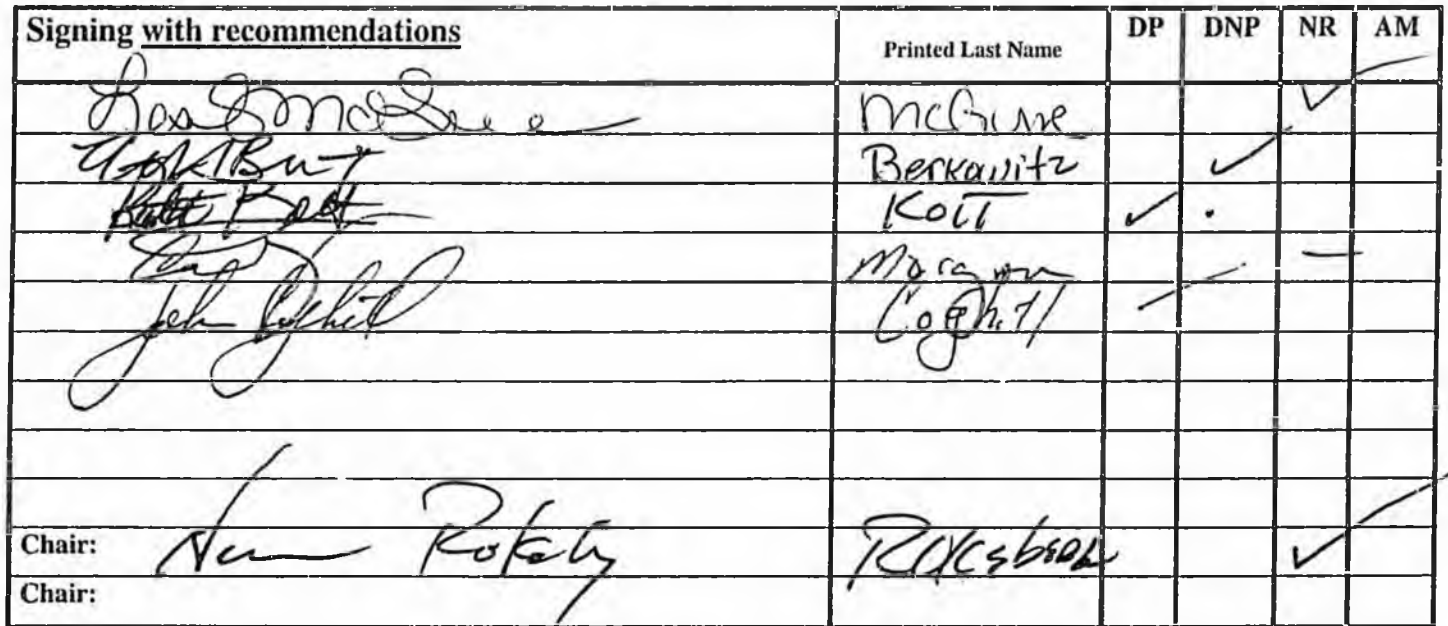 Signing with recommendations Printed Last Name DP DNP NR AM
McGuire ✓
Berkowitz ✓
Kott ✓
Morgan —
John Coghill Coghill
Chair: Rokeberg ✓
Chair: